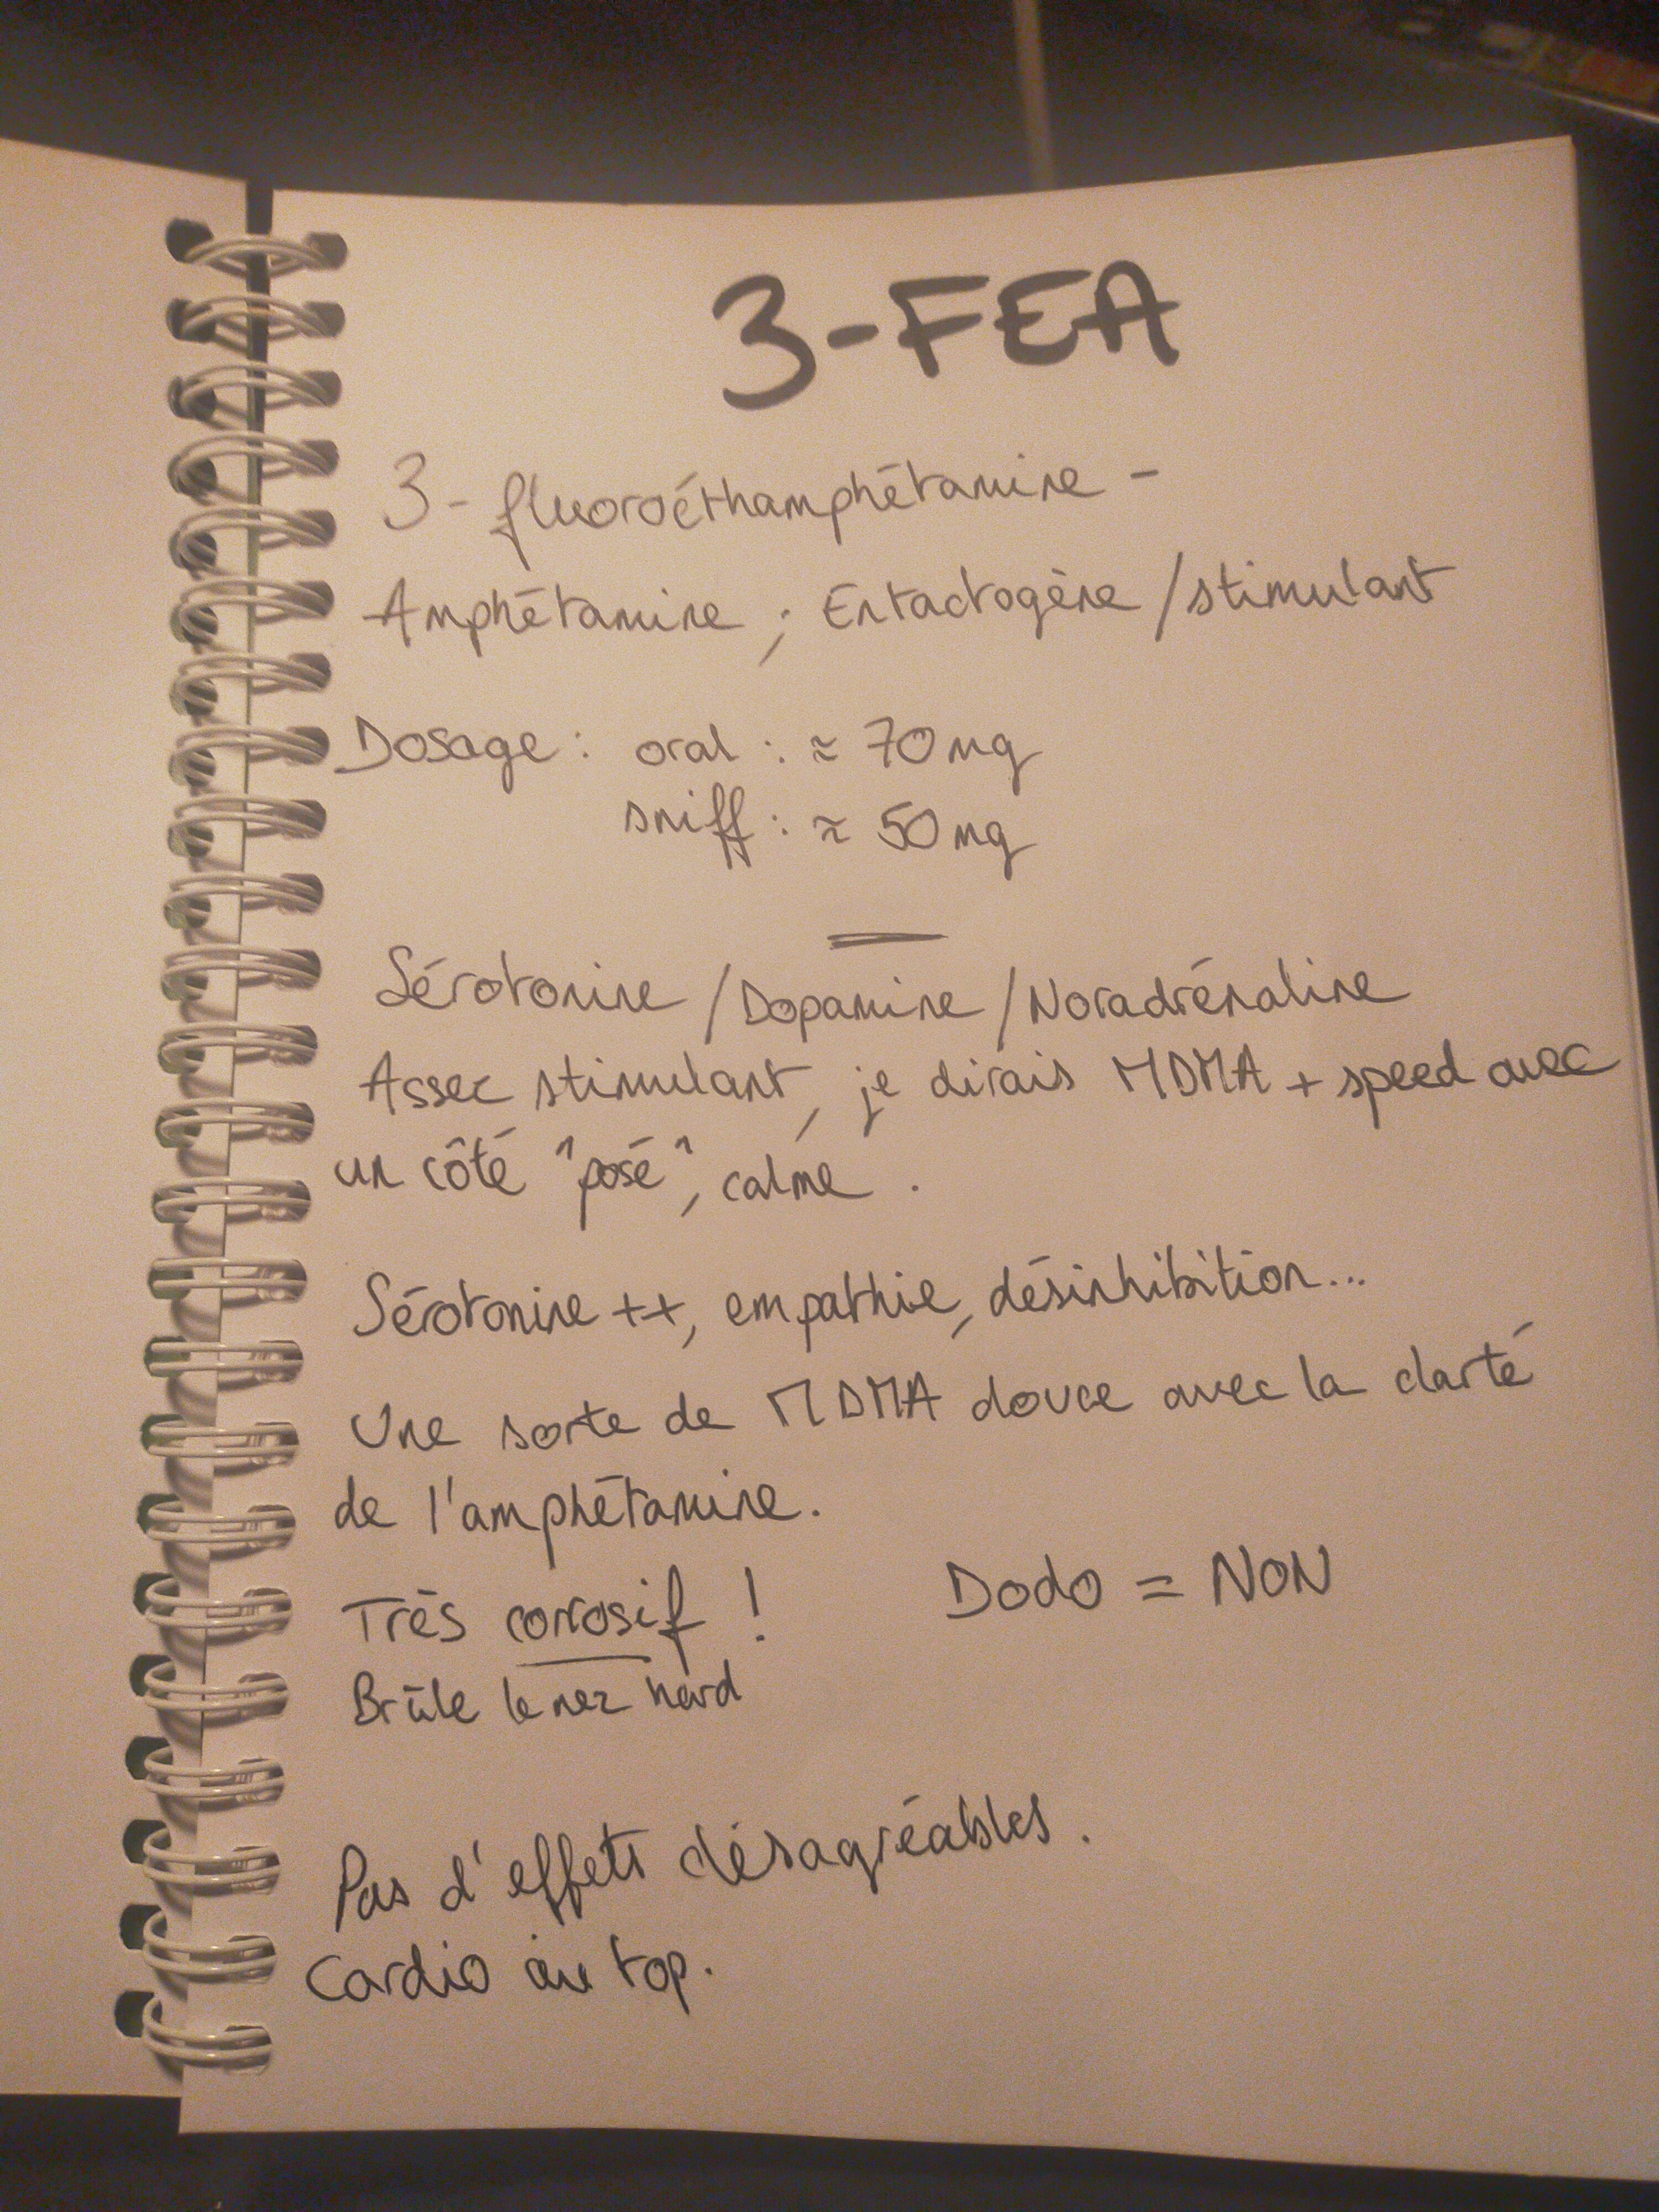 3-FEA
3-fluoroéthamphétamine -
Amphétamine ; Entactogène / stimulant
Dosage : oral : ≈ 70 mg
sniff : ≈ 50 mg
Sérotonine / Dopamine / Noradrénaline
Assez stimulant, je dirais MDMA + speed avec
un côté "posé", calme.
Sérotonine ++, empathie, désinhibition...
Une sorte de MDMA douce avec la clarté
de l'amphétamine.
Très corrosif ! Dodo = NON
Brûle le nez hard
Pas d'effets désagréables.
Cardio au top.